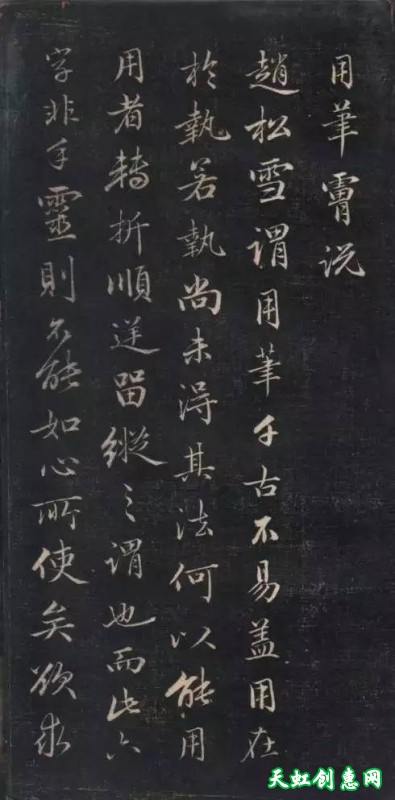 用筆膚说
趙松雪谓用筆千古不易盖用在
於執若執尚未得其法何以能用
用者轉折順逆留縱之谓也而此六
字非手靈則不能如心所使矣欲求
天虹创惠网